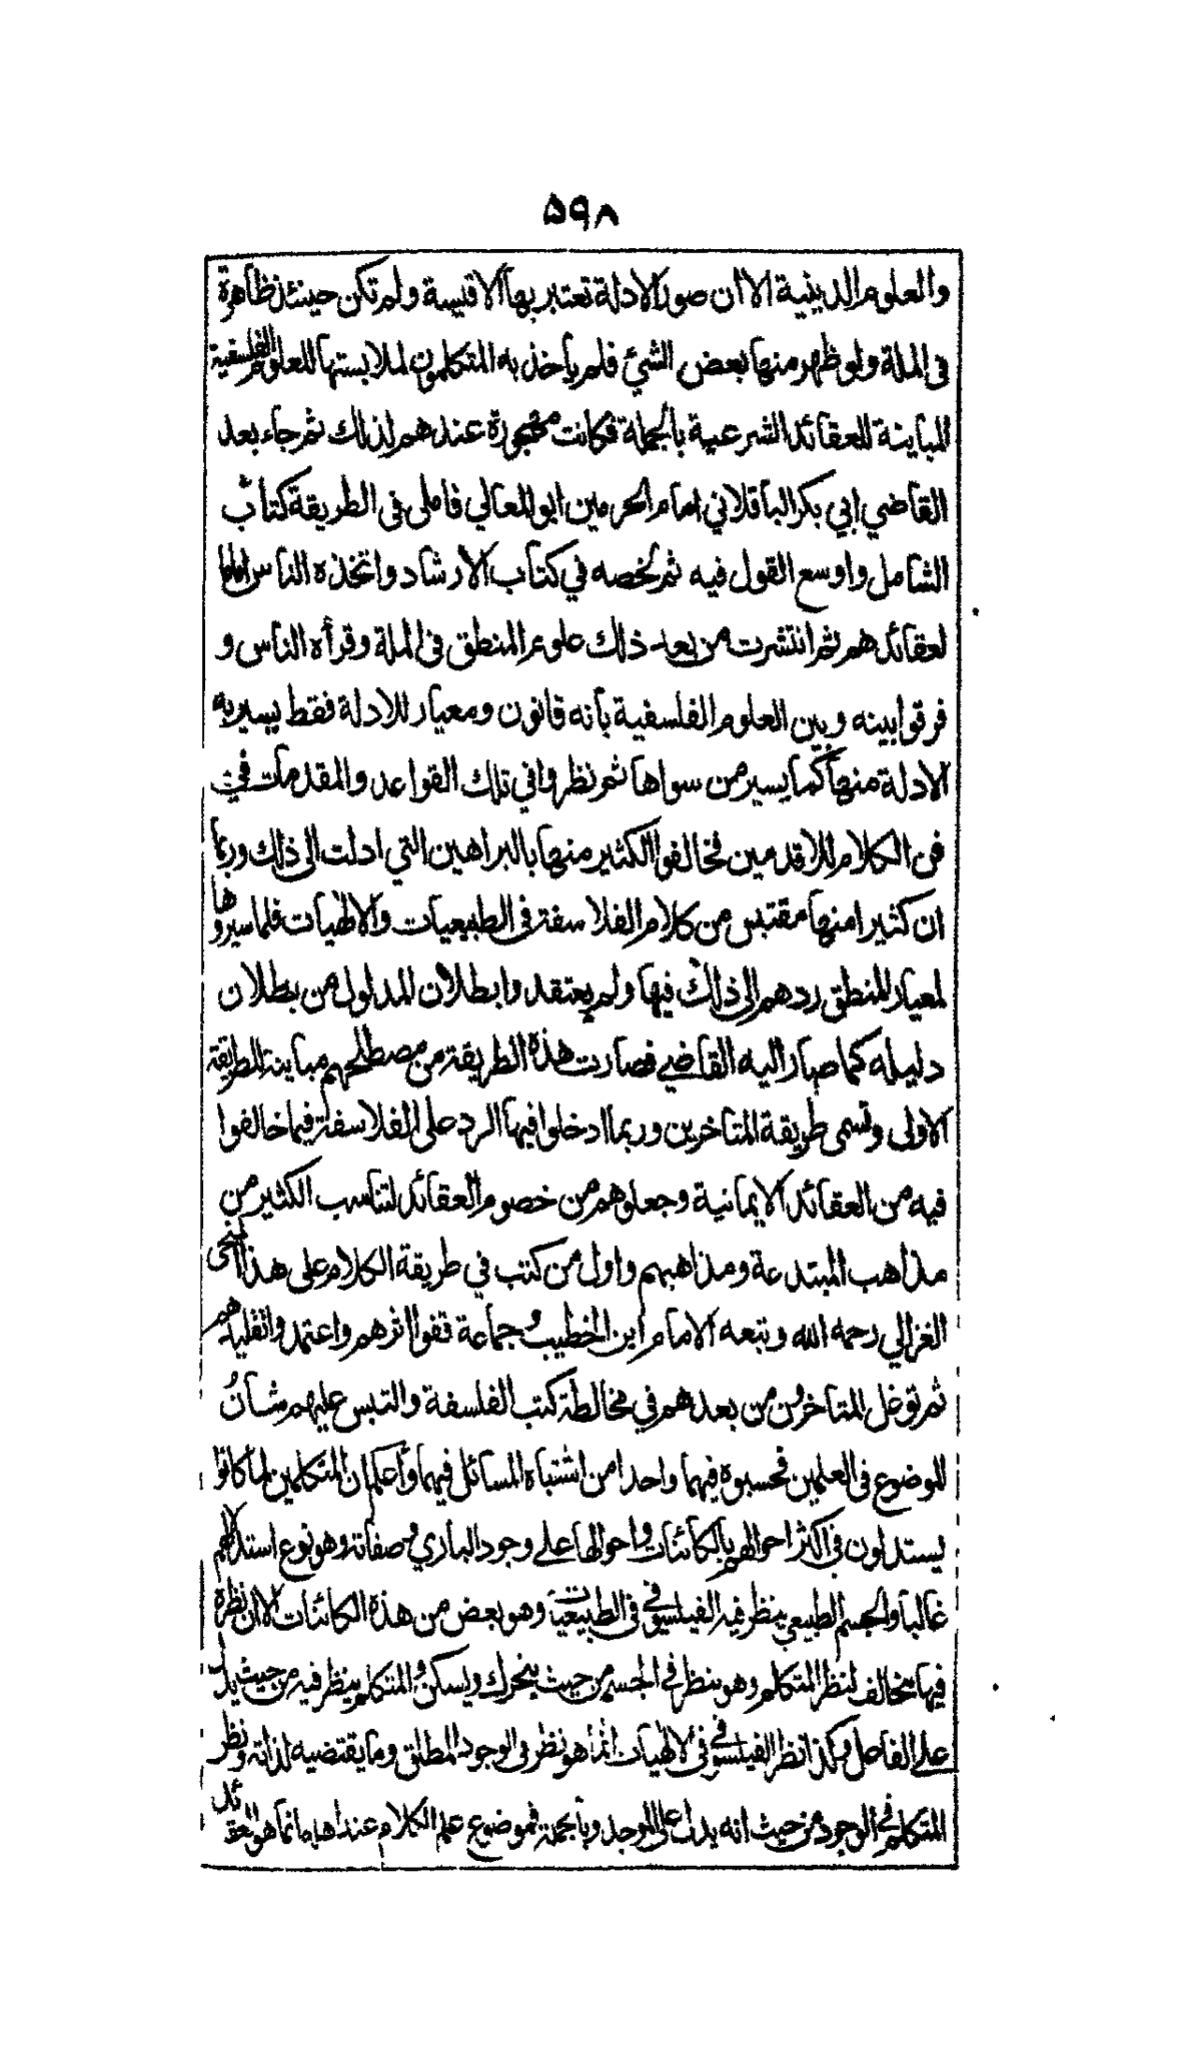 ۵۹۸
والعلوم الدينية الا ان صور الادلة تعتبر بها الاقيسة ولم تكن حينئذ ظاهرة
فى الملة ولو ظهر منها بعض الشئ فلم ياخذ به المتكلمون لملابستها للعلوم الفلسفية
المباينة للعقائد الشرعية بالجملة فكانت مهجورة عندهم لذلك ثم جاء بعد
القاضي ابي بكر الباقلاني امام الحرمين ابو المعالي فاملى فى الطريقة كتاب
الشامل واوسع القول فيه ثم لخصه في كتاب الارشاد واتخذه الناس اماما
لعقائدهم ثم انتشرت من بعد ذلك علوم المنطق فى الملة وقرأه الناس و
فرقوا بينه وبين العلوم الفلسفية بانه قانون ومعيار للادلة فقط يسير به
الادلة منها كما يسير من سواها ثم نظروا في تلك القواعد والمقدمات في
فن الكلام للاقدمين فخالفوا الكثير منها بالبراهين التي ادلت الى ذلك وربما
ان كثيرا منها مقتبس من كلام الفلاسفة فى الطبيعيات والالهيات فلما سبروها
لمعيار المنطق ردهم الى ذلك فيها ولم يعتقدوا بطلان المدلول من بطلان
دليله كما صار اليه القاضي فصارت هذه الطريقة من مصطلحهم مباينة للطريقة
الاولى وتسمى طريقة المتاخرين وربما ادخلوا فيها الرد على الفلاسفة فيما خالفوا
فيه من العقائد الايمانية وجعلوهم من خصوم العقائد لتناسب الكثير من
مذاهب المبتدعة ومذاهبهم واول من كتب في طريقة الكلام على هذا المنحى
الغزالي رحمه الله وتبعه الامام ابن الخطيب وجماعة قفوا اثرهم واعتمدوا تقليدهم
ثم توغل المتاخرون من بعدهم في مخالطة كتب الفلسفة والتبس عليهم شان
الموضوع فى العلمين فحسبوه فيهما واحدا من اشتباه المسائل فيهما واعلم ان المتكلمين لما كانوا
يستدلون فى اكثر احوالهم بالكائنات واحوالها على وجود الباري وصفاته وهو نوع استدلالهم
غالبا والجسم الطبيعي ينظر فيه الفيلسوف فى الطبيعيات وهو بعض من هذه الكائنات الا ان نظره
فيها مخالف لنظر المتكلم وهو ينظر فى الجسم من حيث يتحرك ويسكن والمتكلم ينظر فيه من حيث يدل
على الفاعل وكذا نظر الفيلسوف فى الالهيات انما هو نظر فى الوجود المطلق وما يقتضيه لذاته ونظر
المتكلم فى الوجود من حيث انه يدل على الموجد وبالجملة فموضوع علم الكلام عند اهله انما هو العقائد